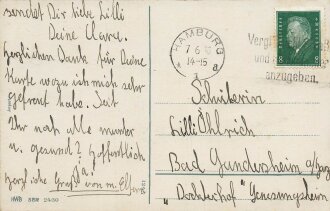 sendet Dir liebe Lilli
Deine Clara.
Herzlichen Dank für Deine
Karte wozu ich mich sehr
gefreut habe. Seid
Ihr noch alle munter
u. gesund? Hoffentlich
ja!
herzliche Grüße von m. Eltern
HWB SER 2400
HAMBURG
7 6
14-15
* 1 a
Vergi
und
anzugeben.
8 8
Schülerin
Lilli Öhlrich
Bad Gandersheim a/Harz
"Dochterhof" Genesungsheim